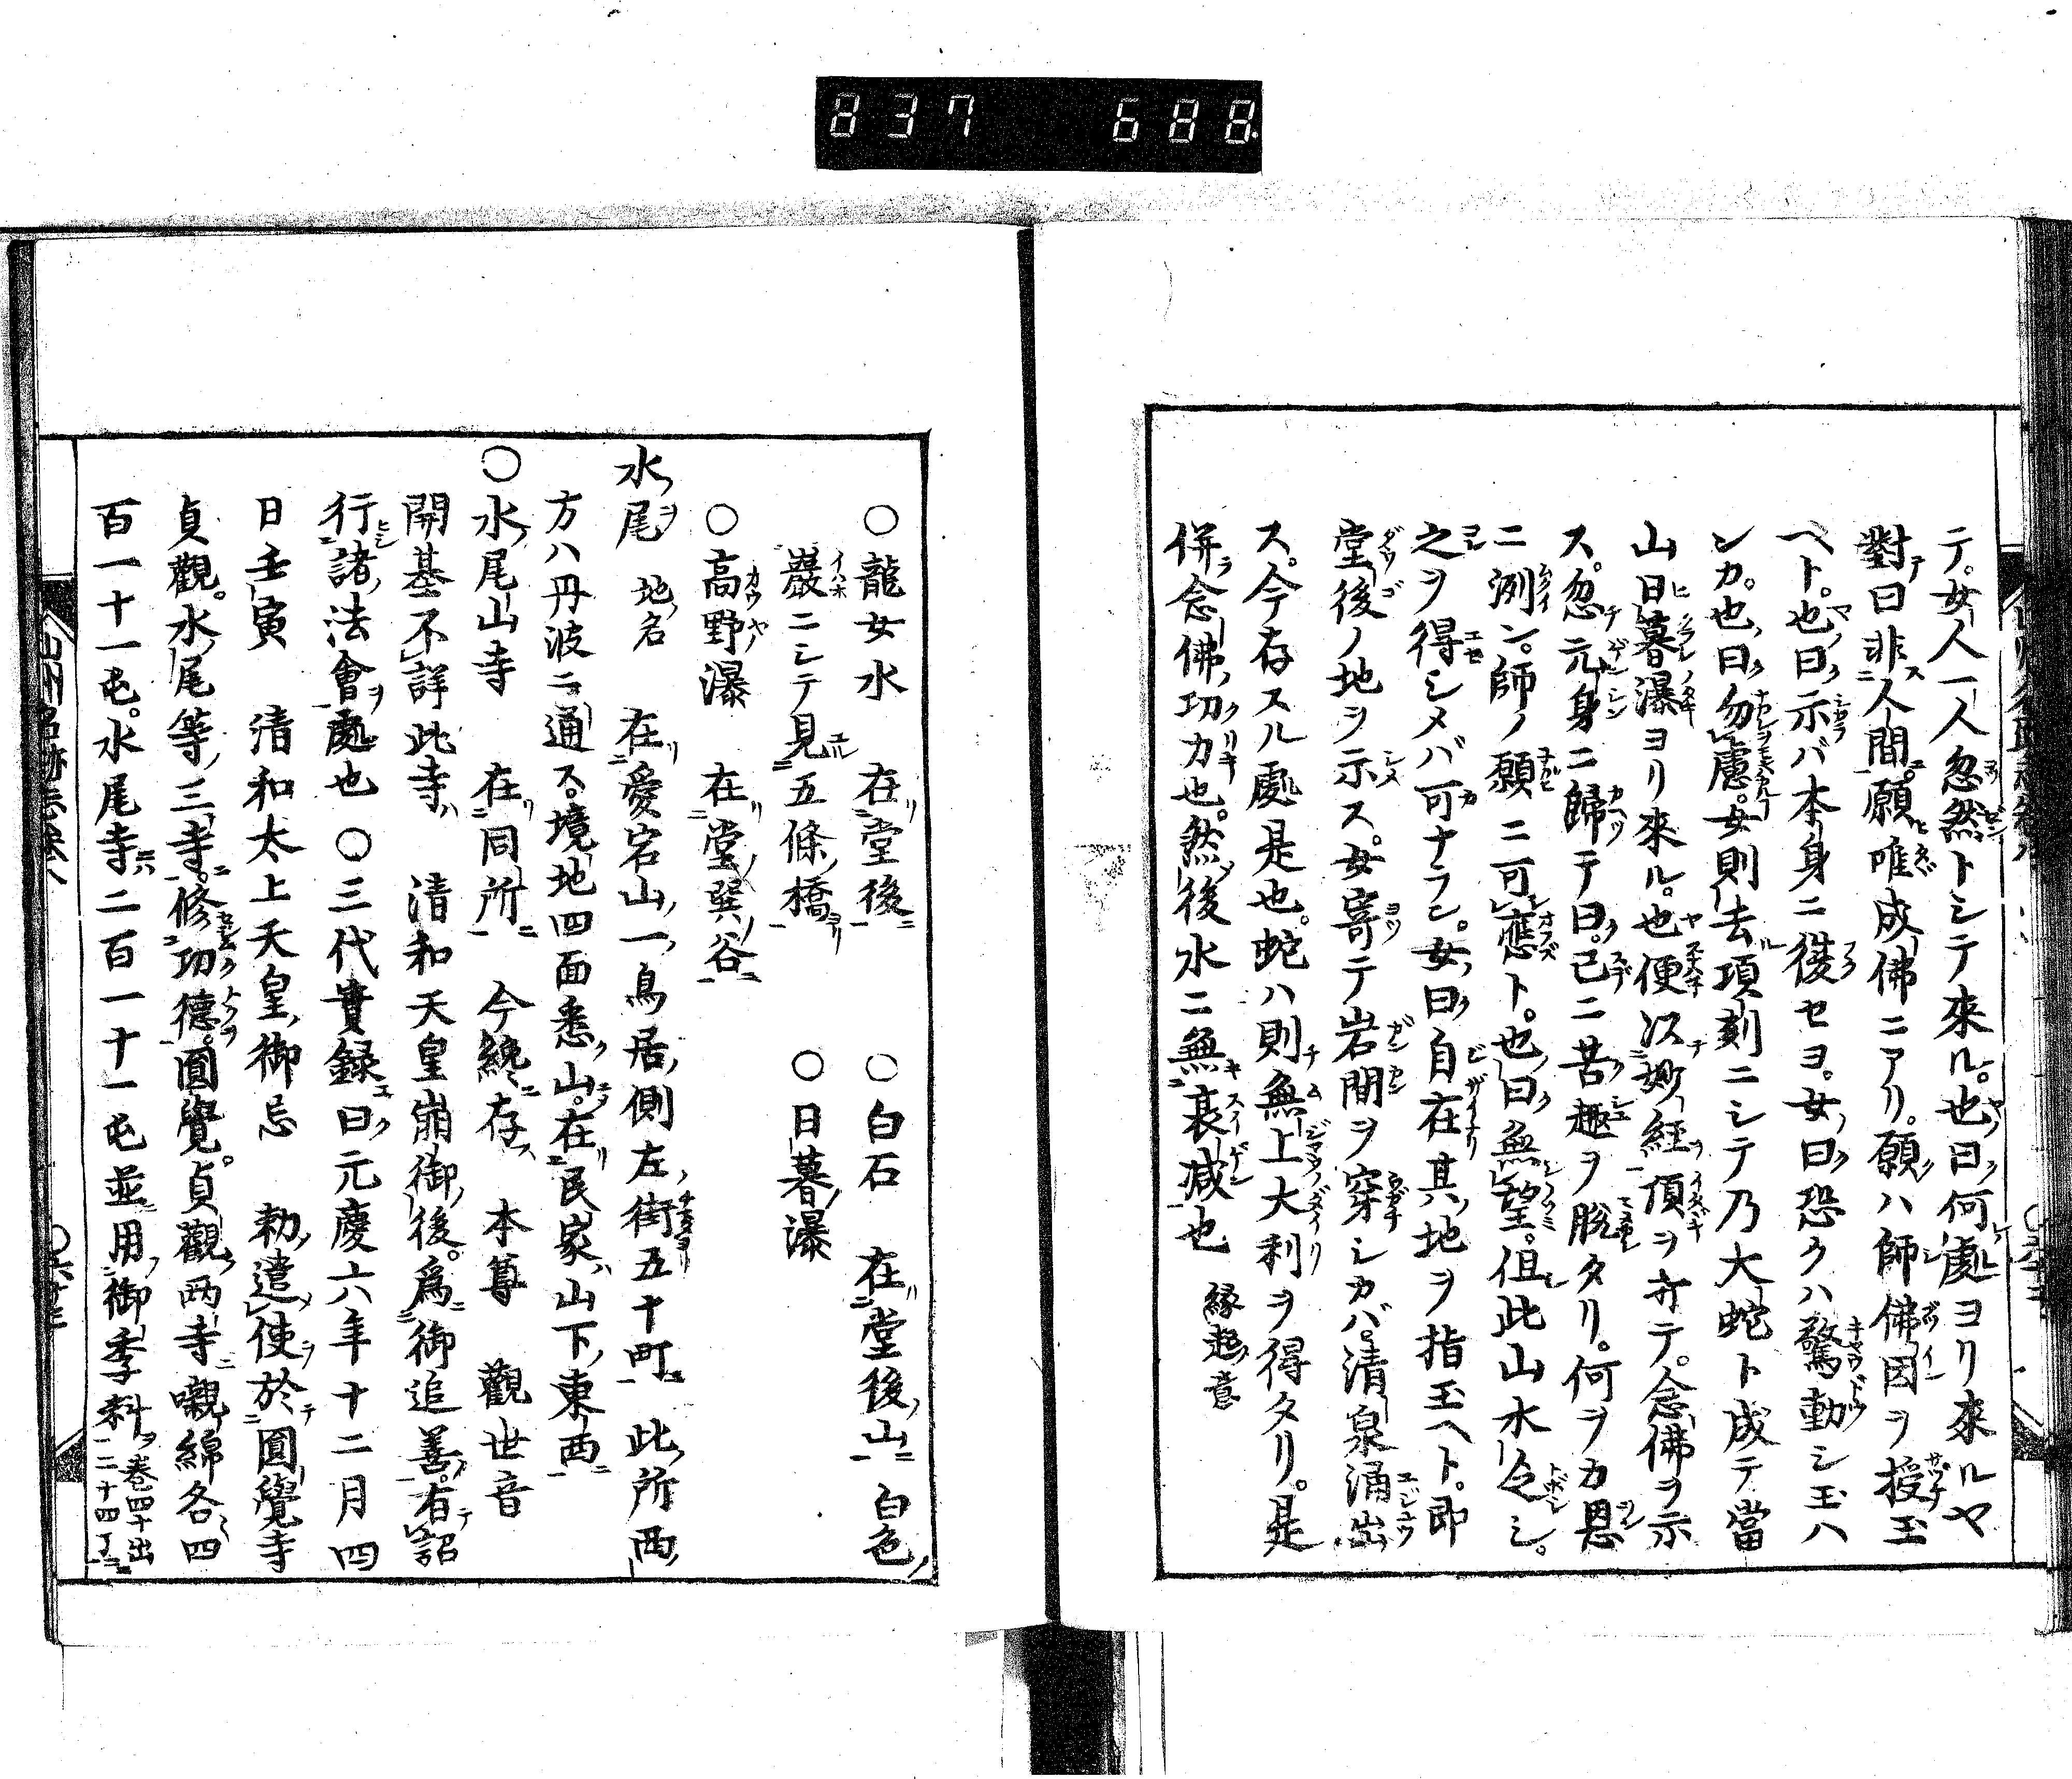 837 688
テ。女人一人忽然トシテ來ル。也曰何處ヨリ來ルヤ
對曰非人間。願唯成佛ニアリ。願ハ師佛因ヲ授玉
ヘト。也曰示バ本身ニ復セヨ。女曰恐クハ驚動シ玉ハ
ンカ。也曰勿慮。女則去項刻ニシテ乃大蛇ト成テ當
山日暮瀑ヨリ來ル。也便以妙經頂ヲ打テ。念佛ヲ示
ス。忽元身ニ歸テ曰。已ニ苦趣ヲ脫タリ。何ヲカ恩
ニ洌ン。師ノ願ニ可應ト。也曰無望。但此山水乏シ。
之ヲ得シメバ可ナラン。女曰自在其地ヲ指玉ヘト。即
堂後ノ地ヲ示ス。女寄テ岩間ヲ穿シカバ。清泉涌出
ス。今存スル處是也。蛇ハ則無上大利ヲ得タリ。是
併念佛功力也。然後水ニ無衰減也 緣起ノ意
○龍女水 在堂後 ○白石 在堂後山 白色
巖ニシテ見五條橋 ○日暮瀑
○高野瀑 在堂巽谷
水尾 地名 在愛宕山一鳥居側左街五十町 此所西
方ハ丹波ニ通ス境地四面悉山。在民家山下東西
○水尾山寺 在同所 今纔存 本尊 觀世音
開基不詳此寺 清和天皇崩御後。爲御追善。有詔
行諸法會處也 ○三代實錄曰元慶六年十二月四
日壬寅 清和太上天皇御忌 勅遣使於圓覺寺
貞觀。水尾等三寺。修功德。圓覺。貞觀兩寺嚫綿各四
百一十一屯。水尾寺二百一十一屯並用御季料 卷四十出二十四丁